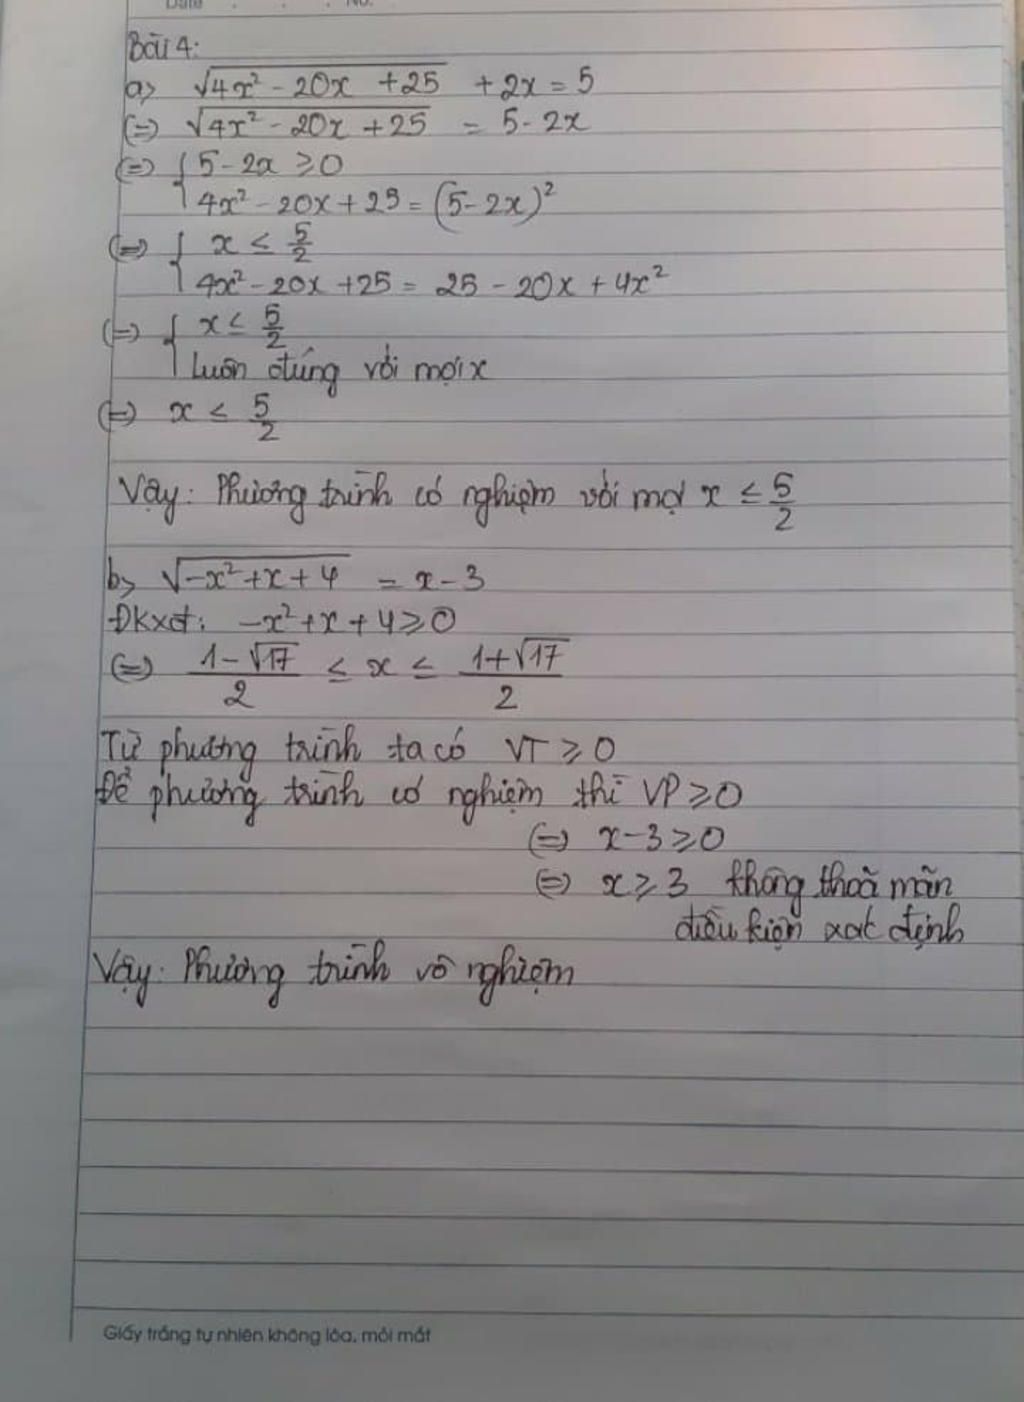 Date . . . No.
Bài 4:
a) √(4x² - 20x + 25) + 2x = 5
(=) √(4x² - 20x + 25) = 5 - 2x
(=) { 5 - 2x ≥ 0
{ 4x² - 20x + 25 = (5 - 2x)²
(=) { x ≤ 5/2
{ 4x² - 20x + 25 = 25 - 20x + 4x²
(=) { x ≤ 5/2
{ Luôn đúng với mọi x
(=) x ≤ 5/2
Vậy: Phương trình có nghiệm với mọi x ≤ 5/2
b) √(-x² + x + 4) = x - 3
Đkxđ: -x² + x + 4 ≥ 0
(=) (1 - √17)/2 ≤ x ≤ (1 + √17)/2
Từ phương trình ta có VT ≥ 0
Để phương trình có nghiệm thì VP ≥ 0
(=) x - 3 ≥ 0
(=) x ≥ 3 không thoả mãn
điều kiện xác định
Vậy: Phương trình vô nghiệm
Giấy trắng tự nhiên không lóa, mỏi mắt